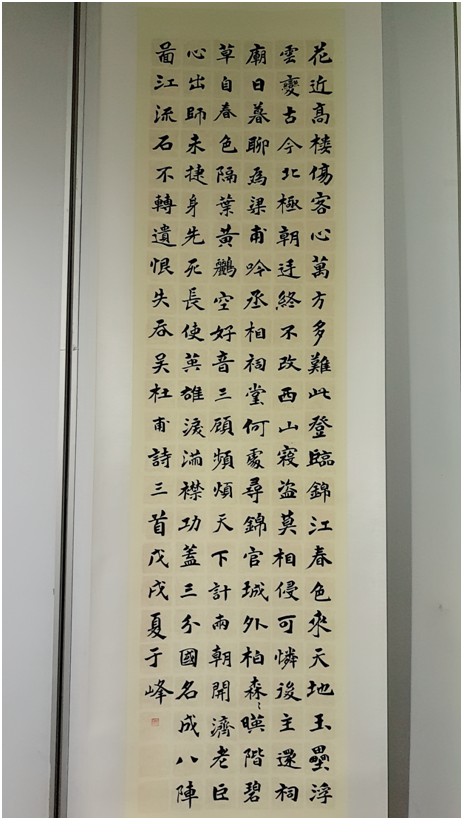 花近高楼傷客心萬方多難此登臨錦江春色來天地玉壘浮
雲變古今北極朝廷終不改西山寇盗莫相侵可憐後主還祠
廟日暮聊為梁甫吟丞相祠堂何處尋錦官城外柏森〻暎階碧
草自春色隔葉黄鸝空好音三顧頻煩天下計兩朝開濟老臣
心出師未捷身先死長使英雄淚滿襟功蓋三分國名成八陣
圖江流石不轉遺恨失吞吴杜甫詩三首戊戌夏于峰